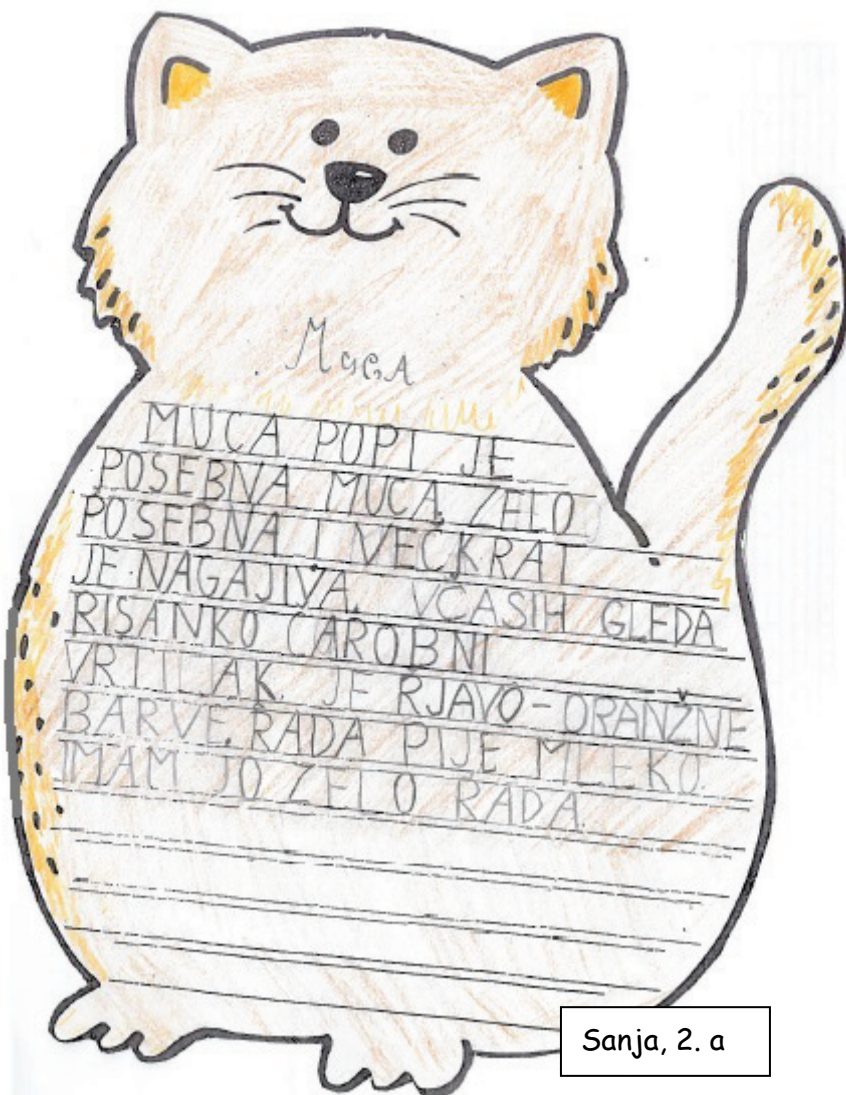 MUCA
MUCA POPI JE
POSEBNA MUCA. ZELO
POSEBNA I VEČKRAT
JE NAGAJIVA. VČASIH GLEDA
RISANKO ČAROBNI
VRTILJAK. JE RJAVO-ORANŽNE
BARVE. RADA PIJE MLEKO.
IMAM JO ZELO RADA.
Sanja, 2. a